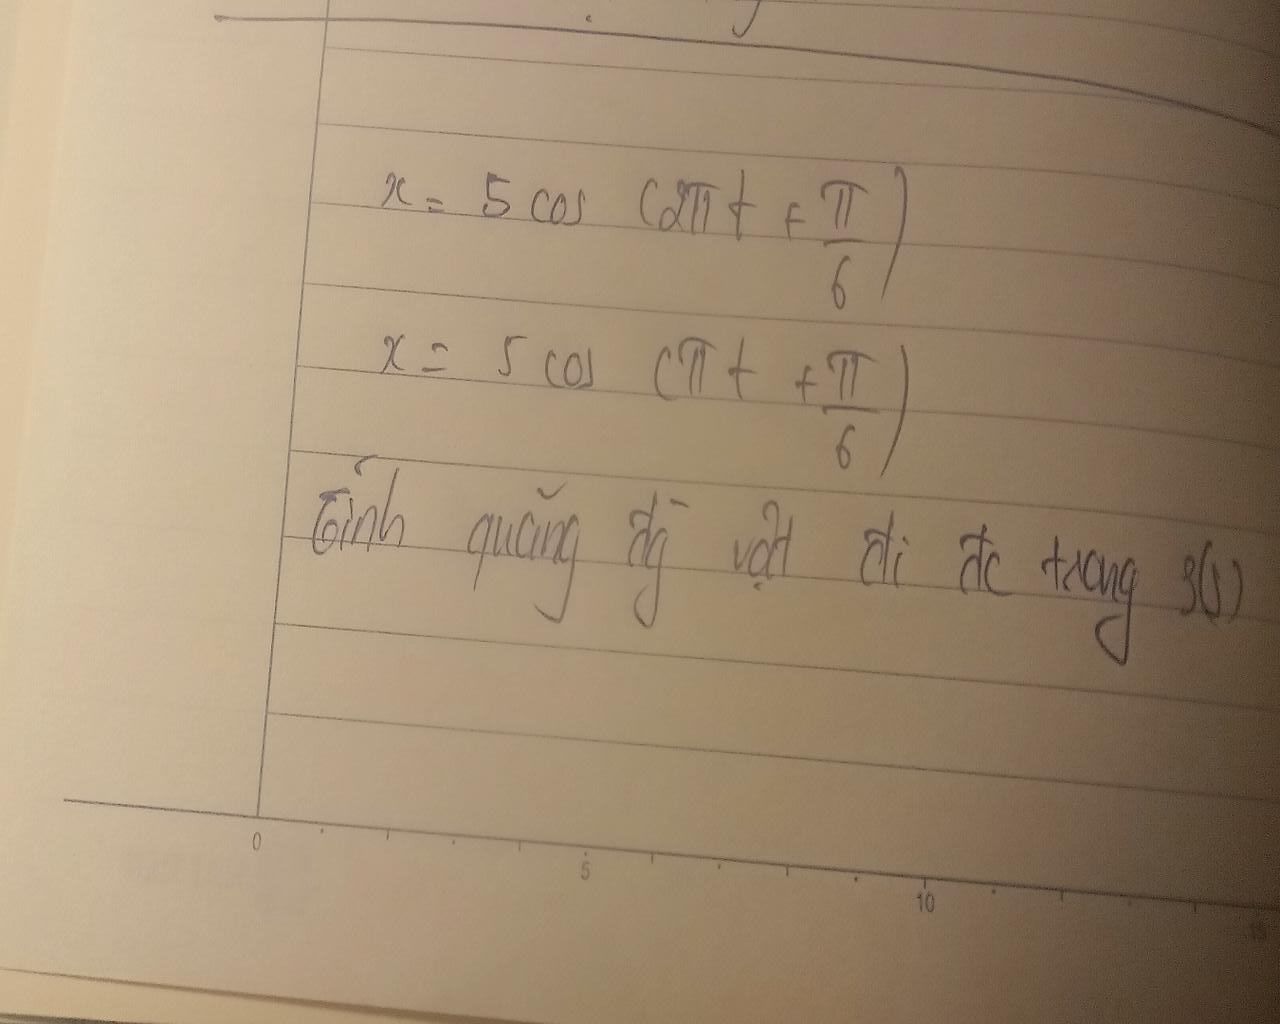 x = 5 cos (2πt + π/6)
x = 5 cos (πt + π/6)
Tính quãng đg̀ vật đi đc trong 3(s)
0 5 10